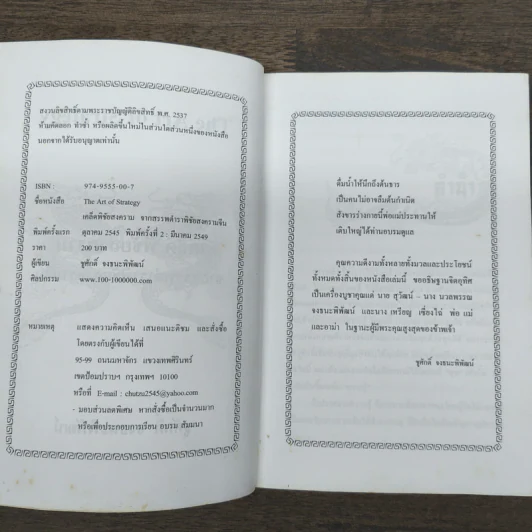 สงวนลิขสิทธิ์ตามพระราชบัญญัติลิขสิทธิ์ พ.ศ. 2537
ห้ามคัดลอก ทำซ้ำ หรือผลิตขึ้นใหม่ในส่วนใดส่วนหนึ่งของหนังสือ
นอกจากได้รับอนุญาตเท่านั้น
ISBN : 974-9555-00-7
ชื่อหนังสือ The Art of Strategy
เคล็ดพิชัยสงคราม จากสรรพตำราพิชัยสงครามจีน
พิมพ์ครั้งแรก ตุลาคม 2545 พิมพ์ครั้งที่ 2 : มีนาคม 2549
ราคา 200 บาท
ผู้เขียน ชูศักดิ์ จงธนะพิพัฒน์
ศิลปกรรม www.100-1000000.com
หมายเหตุ แสดงความคิดเห็น เสนอแนะติชม และสั่งซื้อ
โดยตรงกับผู้เขียนได้ที่
95-99 ถนนมหาจักร แขวงเทพศิรินทร์
เขตป้อมปราบฯ กรุงเทพฯ 10100
หรือที่ E-mail : chutzu2545@yahoo.com
- มอบส่วนลดพิเศษ หากสั่งซื้อเป็นจำนวนมาก
หรือเพื่อประกอบการเรียน อบรม สัมมนา
ดื่มน้ำให้นึกถึงต้นธาร
เป็นคนไม่อาจลืมต้นกำเนิด
สังขารร่างกายนี้พ่อแม่ประทานให้
เติบใหญ่ได้ท่านอบรมดูแล
คุณความดีงามทั้งหลายทั้งมวลและประโยชน์
ทั้งหมดทั้งสิ้นของหนังสือเล่มนี้ ขออธิษฐานจิตอุทิศ
เป็นเครื่องบูชาคุณแด่ นาย สุวัฒน์ - นาง นวลพรรณ
จงธนะพิพัฒน์ และนาง เหรียญ เซี่ยงไฉ่ พ่อ แม่
และอาม่า ในฐานะผู้มีพระคุณสูงสุดของข้าพเจ้า
ชูศักดิ์ จงธนะพิพัฒน์